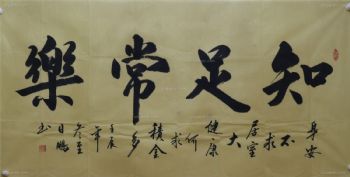 知足常樂
身安不求居室大
健康何求積金多
壬辰年